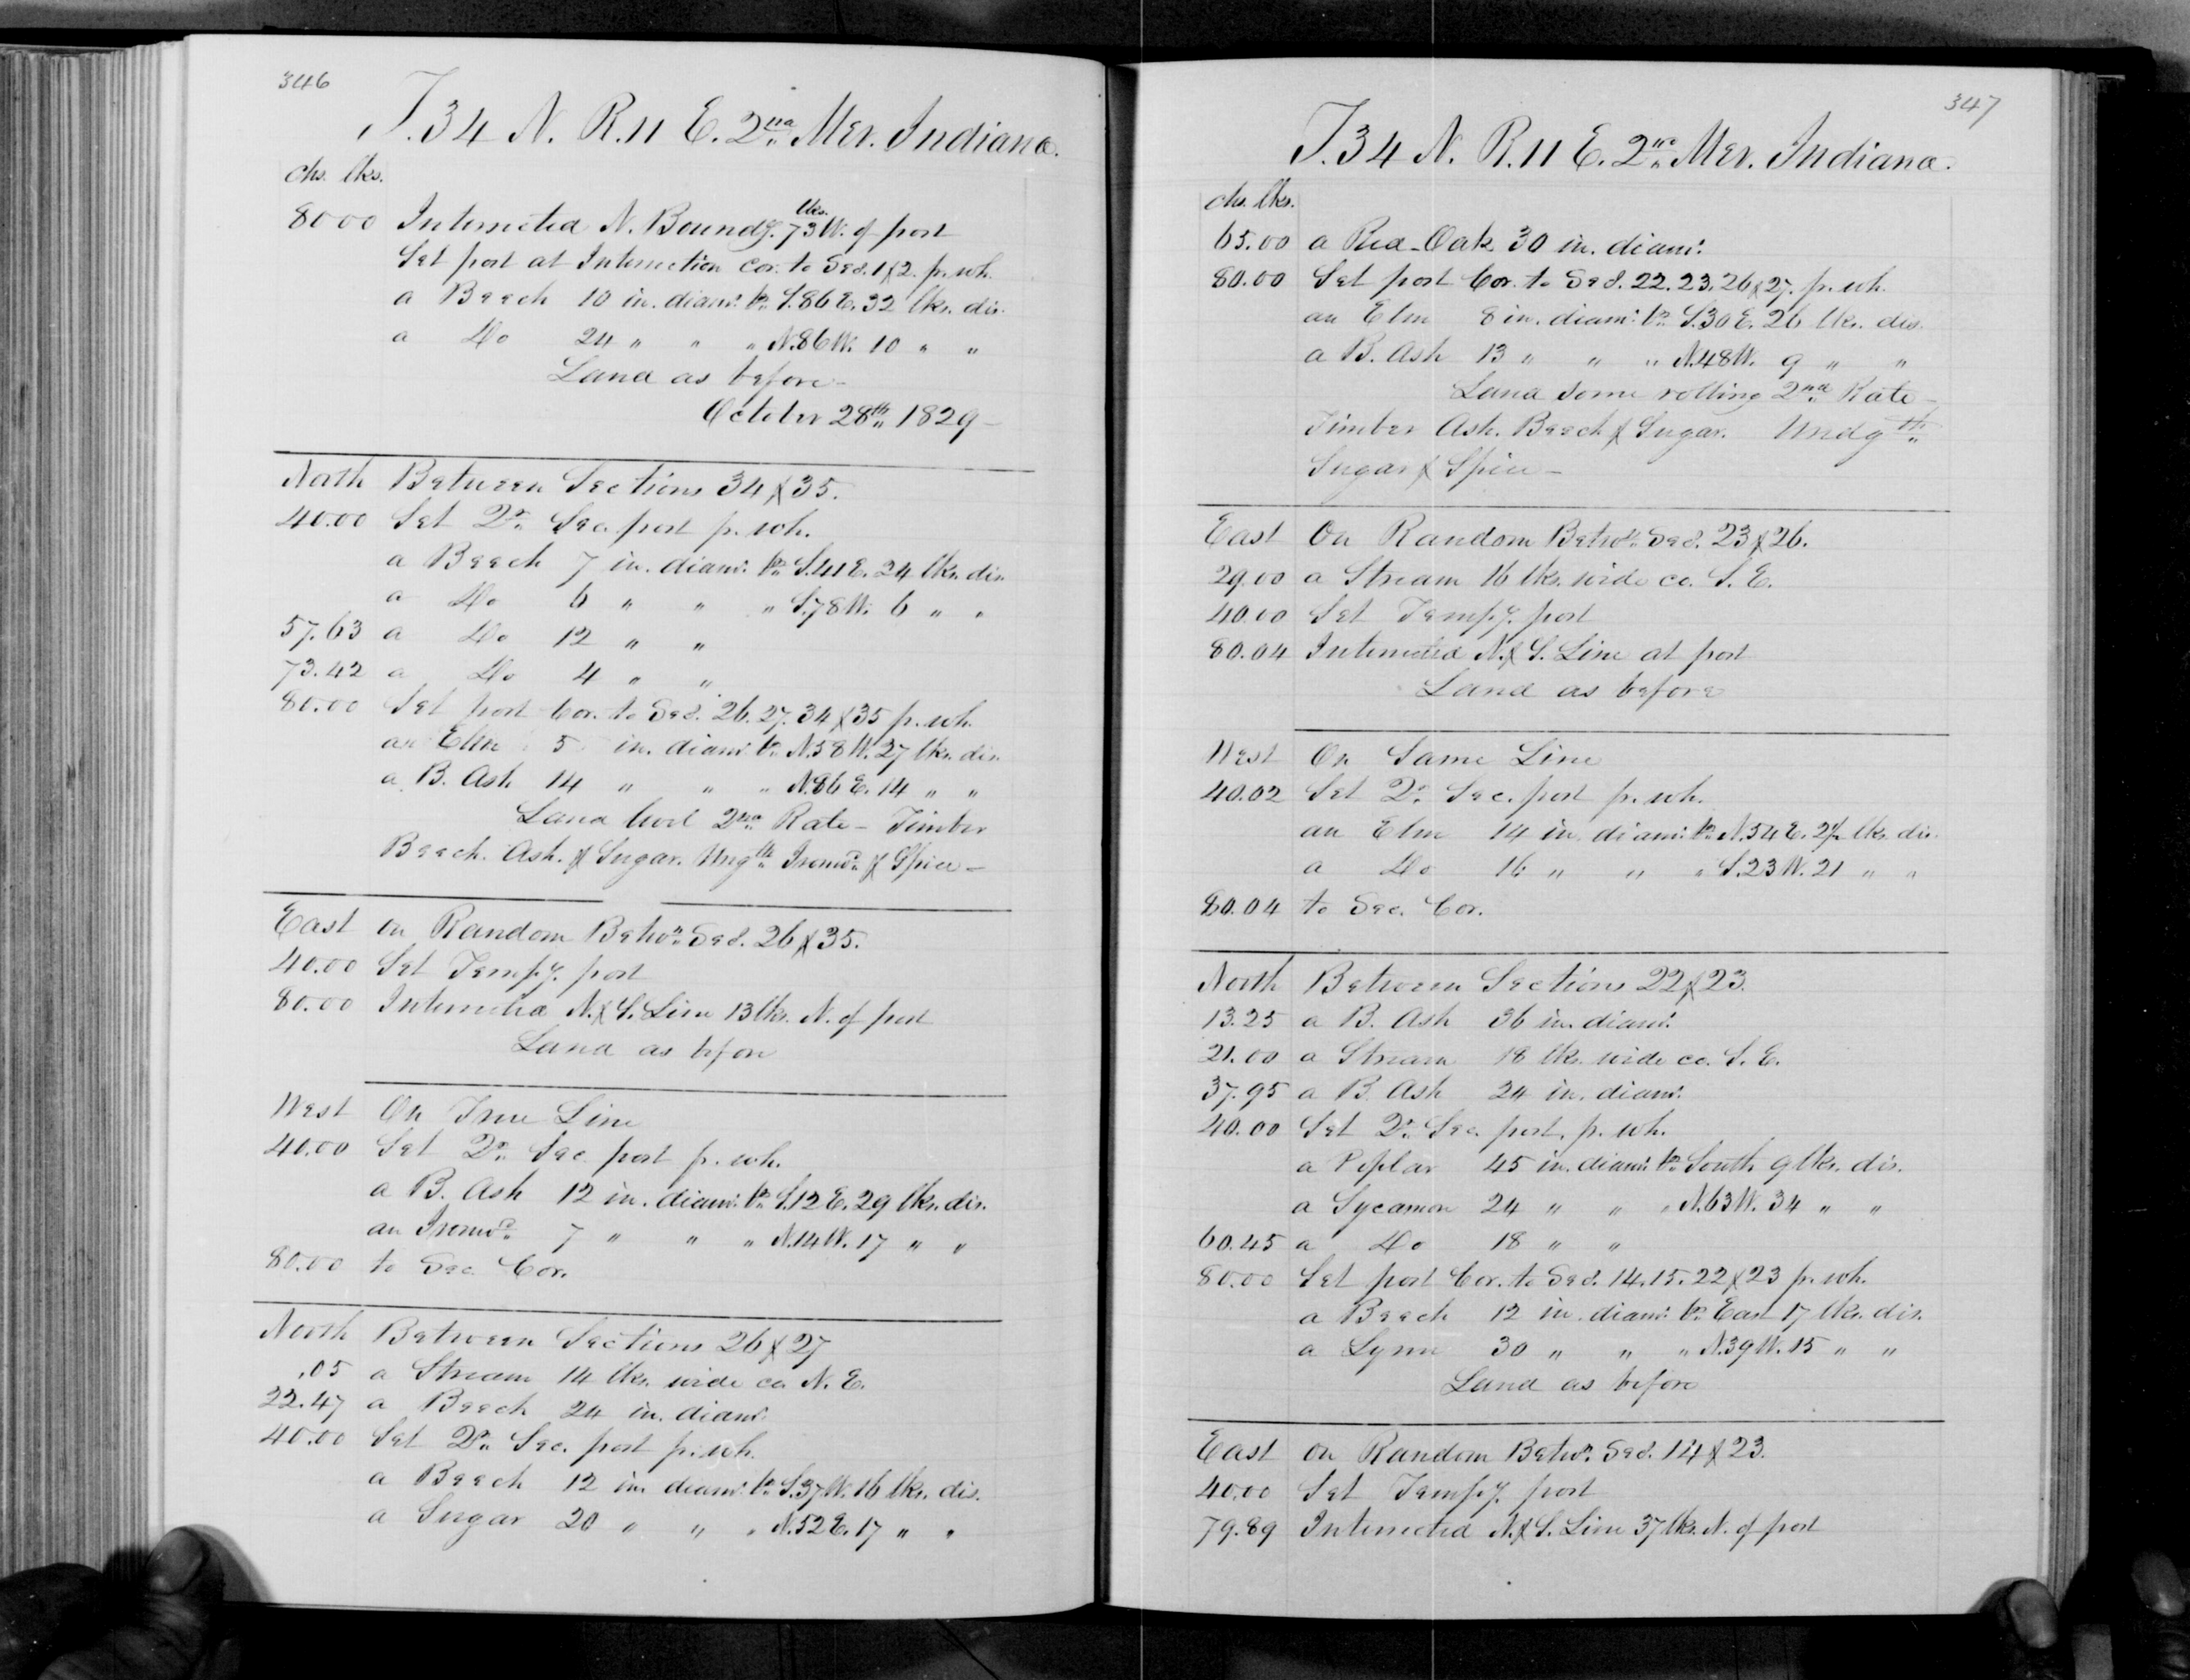 346
T. 34 N. R. 11 E. 2nd Mer. Indiana.
chs. lks.
80 00 Intersected N. Boundy. 73 lks. W. of post
Set post at Intersection cor. to Secs. 1 & 2. p. wh.
a Beech 10 in. diam. br. S. 86 E. 32 lks. dis.
a Do 24 " " " N. 86 W. 10 " "
Land as before -
October 28th 1829 -
North Between Sections 34 & 35.
40.00 Set Qr. Sec. post p. wh.
a Beech 7 in. diam. br. S. 41 E. 24 lks. dis.
a Do 6 " " " S. 78 W. 6 " "
57.63 a Do 12 " "
73.42 a Do 4 " "
80.00 Set post Cor. to Secs. 26. 27. 34 & 35 p. wh.
an Elm 5 in. diam. br. N. 58 W. 27 lks. dis.
a B. Ash 14 " " " N. 86 E. 14 " "
Land level 2nd Rate - Timber
Beech. Ash. & Sugar. Ungth. Ironwd. & Spice -
East on Random Betwn. Secs. 26 & 35.
40.00 Set Tempy. post
80.00 Intersected N. & S. Line 13 lks. N. of post
Land as before
West On True Line
40.00 Set Qr. Sec. post p. wh.
a B. Ash 12 in. diam. br. S. 12 E. 29 lks. dis.
an Ironwd. 7 " " " N. 14 W. 17 " "
80.00 to Sec. Cor.
North Between Sections 26 & 27
.05 a Stream 14 lks. wide co. N. E.
22.47 a Beech 24 in. diam.
40.00 Set Qr. Sec. post p. wh.
a Beech 12 in. diam. br. S. 37 W. 16 lks. dis.
a Sugar 20 " " " N. 52 E. 17 " "
347
T. 34 N. R. 11 E. 2nd Mer. Indiana.
chs. lks.
65.00 a Red Oak 30 in. diam.
80.00 Set post Cor. to Secs. 22. 23. 26 & 27. p. wh.
an Elm 8 in. diam. br. S. 30 E. 26 lks. dis.
a B. Ash 13 " " " N. 48 W. 9 " "
Land some rolling 2nd Rate -
Timber Ash. Beech & Sugar. Undgth.
Sugar & Spice -
East On Random Betwn. Secs. 23 & 26.
29.00 a Stream 16 lks. wide co. S. E.
40.00 Set Tempy. post
80.04 Intersected N. & S. Line at post
Land as before
West On Same Line
40.02 Set Qr. Sec. post p. wh.
an Elm 14 in. diam. br. N. 54 E. lks. dis.
a Do 16 " " " S. 23 W. 21 " "
80.04 to Sec. Cor.
North Between Sections 22 & 23.
13.25 a B. Ash 36 in. diam.
21.00 a Stream 18 lks. wide co. S. E.
37.95 a B. Ash 24 in. diam.
40.00 Set Qr. Sec. post. p. wh.
a Poplar 45 in. diam. br. South 9 lks. dis.
a Sycamore 24 " " " N. 63 W. 34 " "
60.45 a Do 18 " "
80.00 Set post Cor. to Secs. 14. 15. 22 & 23 p. wh.
a Beech 12 in. diam. br. East 17 lks. dis.
a Lynn 30 " " " N. 39 W. 15 " "
Land as before
East on Random Betwn. Secs. 14 & 23.
40.00 Set Tempy. post
79.89 Intersected N. & S. Line 37 lks. N. of post